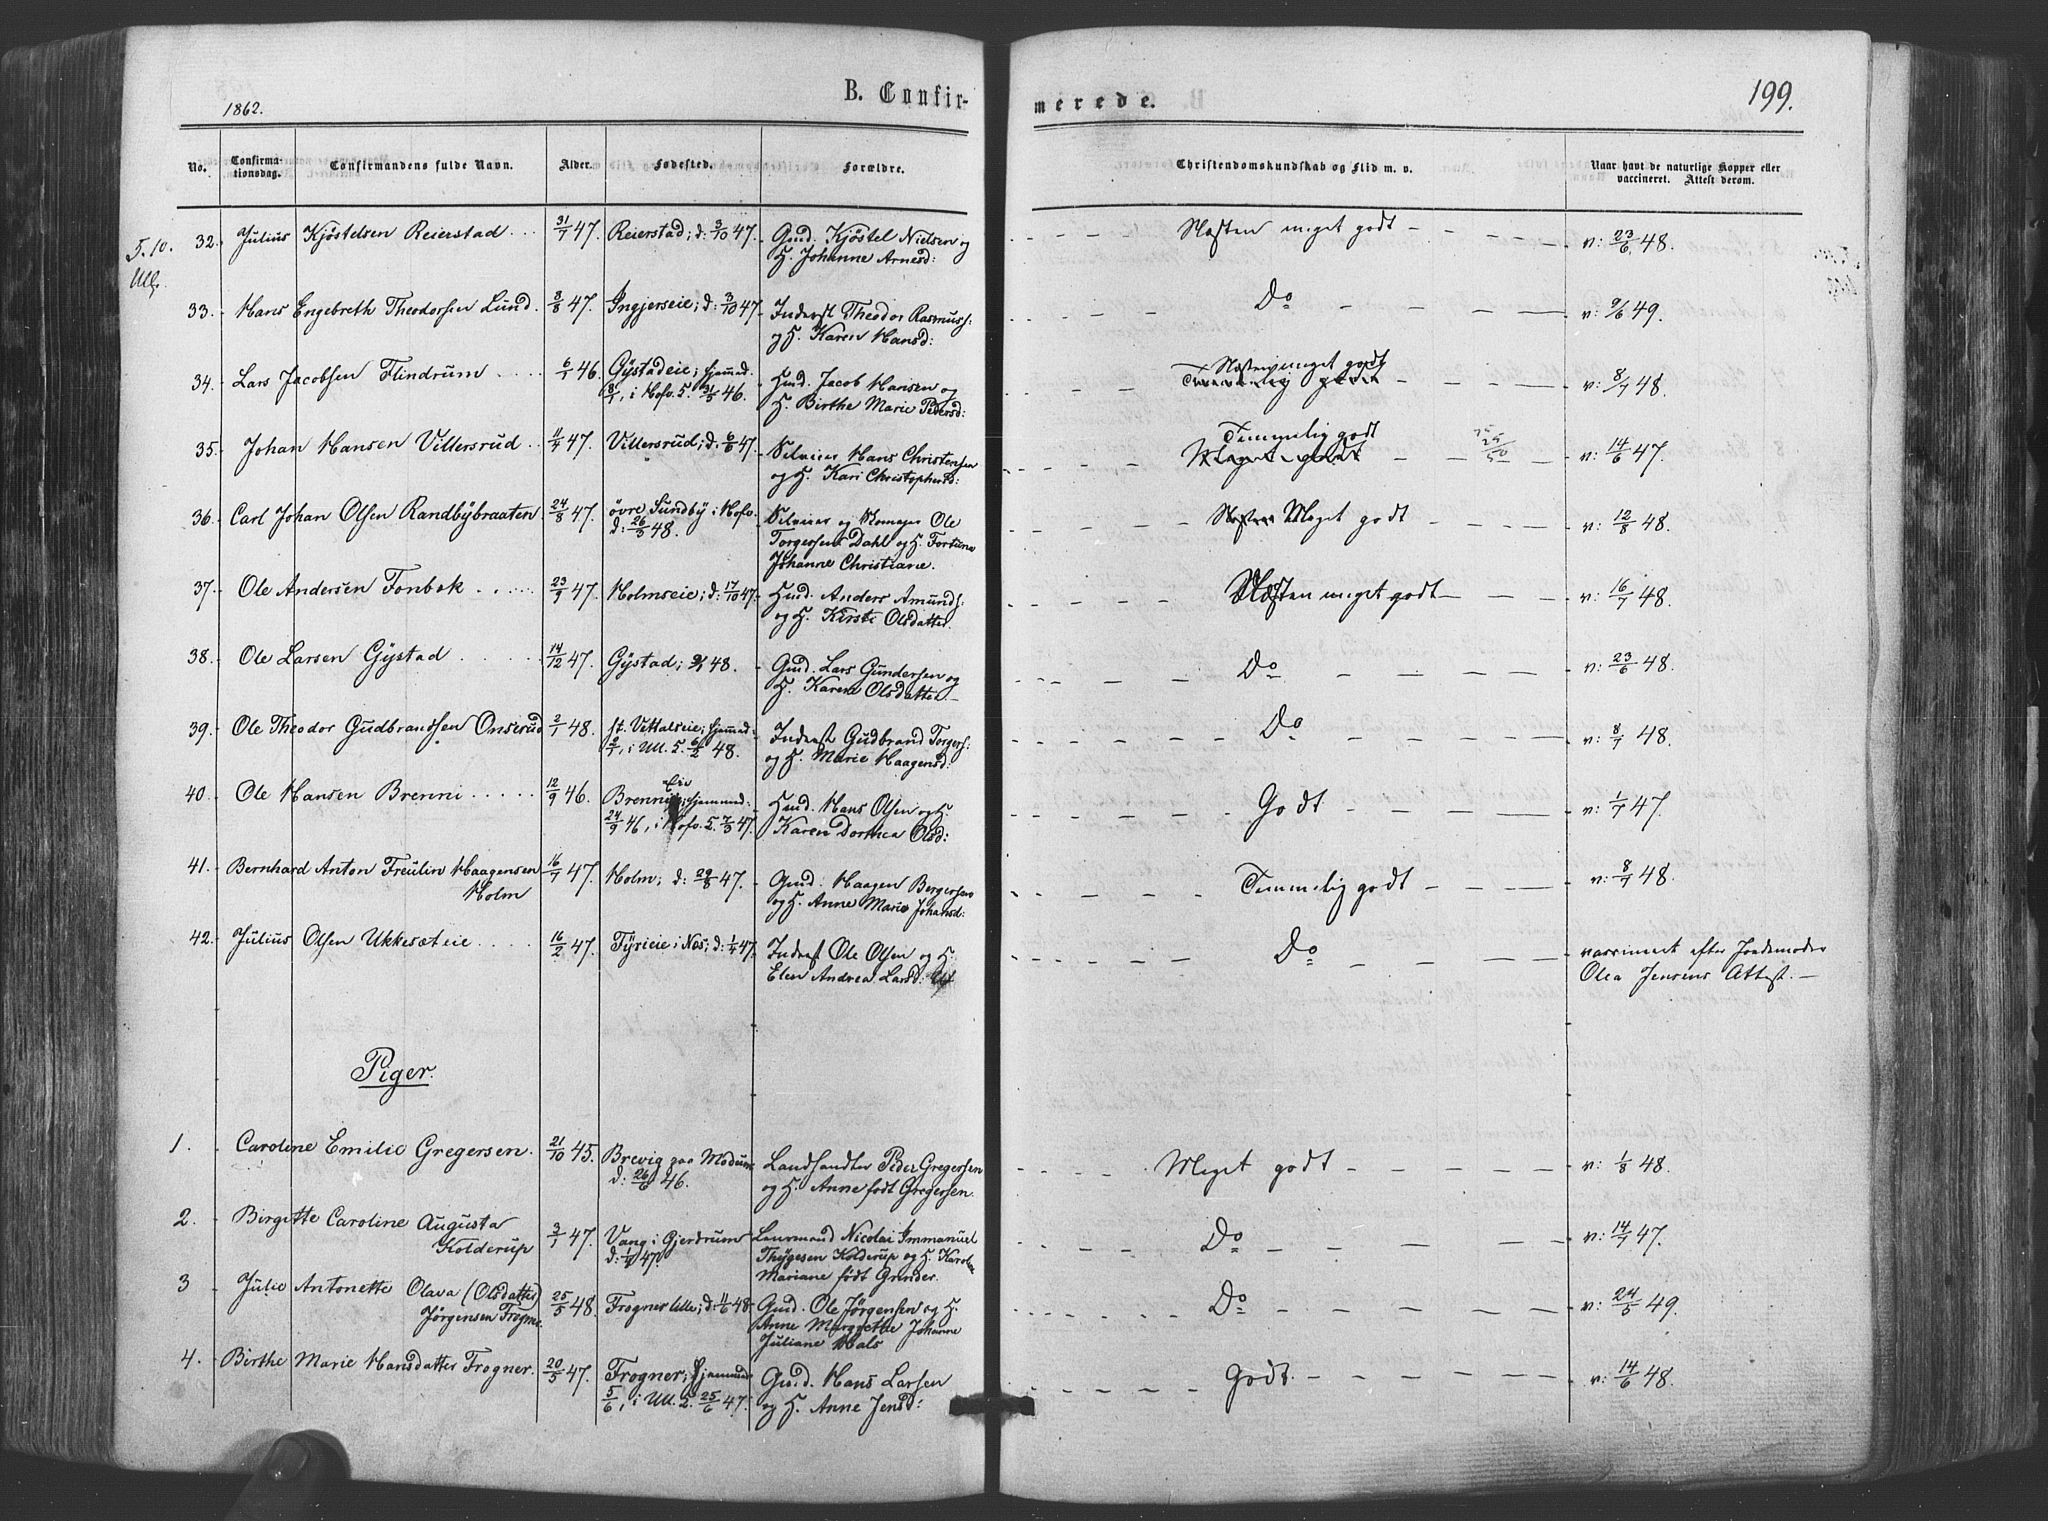 1862.
B. Confir-
merede.
199.
No.
Confirma-
tionsdag.
Confirmandens fulde Navn.
Alder.
Fødested.
Forældre.
Christendomskundskab og Flid m. v.
Naar havt de naturlige Kopper eller
vaccineret. Attest derom.
5.10.
Ull.
32. Julius Kjöstelsen Reierstad 31/7 47. Reierstad; d: 3/10 47. Gmd. Kjöstel Nielsen og
H. Johanne Arnesd:
Næsten meget godt v: 23/6 48.
33. Hans Engebreth Theodorsen Lund. 3/8 47. Ingjerseie; d: 3/10 47. Inderst Theodor Rasmuss:
og H. Karen Hansd:
Do v: 9/6 49.
34. Lars Jacobsen Flindrum 6/1 46. Gÿstadeie; hjemmed.
8/1, i Hofv. 5. 31/5 46.
Hmd. Jacob Hansen og
H. Birthe Marie Pedersd:
Næsten meget godt
Temmelig godt v: 8/7 48.
35. Johan Hansen Villersrud 11/4 47. Villersrud; d: 6/6 47. Selveier Hans Christensen
og H. Kari Christophersd:
Temmelig godt
Meget godt v: 14/6 47.
36. Carl Johan Olsen Randbÿbraaten 24/8 47. övre Sundbÿ i Hofv.
d: 26/3 48.
Selveier og Ole
Torgersens Dahl og H. Fortune
Johanne Christiane.
Næsten Meget godt v: 12/8 48.
37. Ole Andersen Fonbæk 23/9 47. Holmseie; d: 17/10 47. Hmd. Anders Amunds:
og H. Kirsti Olsdatter.
Næsten meget godt v: 16/7 48.
38. Ole Larsen Gÿstad 14/12 47. Gÿstad; 48. Gmd. Lars Gundersen og
H. Karen Olsdatter
Do v: 23/6 48.
39. Ole Theodor Gudbrandsen Onserud 2/1 48. st. Vettalseie; hjemmed.
2/1, i Ull. 5. 6/2 48.
Inderst Gudbrand Torgers:
og H. Marie Haagensd:
Do v: 8/7 48.
40. Ole Hansen Brenni 12/9 46. Brenni Eie; hjemmed.
24/9 46, i Hofv. 5. 7/3 47.
Hmd. Hans Olsen og H.
Karen Dorthea Olsd:
Godt v: 1/7 47.
41. Bernhard Anton Freulin Haagensen
Holm 16/7 47. Holm; d: 29/8 47. Gmd: Haagen Bergersen
og H. Anne Marie Johansd:
Temmelig godt v: 8/7 48.
42. Julius Olsen Ukkesæteie 16/2 47. Tÿrieie i Næs; d: 1/4 47. Inderst Ole Olsen og H.
Elen Andrea Larsd:
Do vaccineret efter Jordemoder
Olea Jensens Attest.
Piger.
1. Caroline Emilie Gregersen. 21/10 45. Brevig paa Modum
d: 26/6 46.
Landhandler Peder Gregersen
og H. Anne født Gregersen.
Meget godt v: 1/8 48.
2. Birgitte Caroline Augusta
Kolderup 3/1 47. Vang i Gjerdrum
d: 1/4 47
Lensmand Nicolai Immanuel
Thÿgesen Kolderup og H. Karoline
Mariane født Grinder.
Do v: 14/7 47.
3 Julie Antonette Olava (Olsdatter)
Jørgensen Frogner. 25/5 48. Frogner lille; d: 11/6 48. Gmd. Ole Jørgensen og H.
Anne Margrethe Johanne
Juliane Hals
Do v: 24/5 49.
4. Birthe Marie Hansdatter Frogner. 20/5 47. Frogner; hjemmed.
5/6, i Ull. 5. 25/6 47.
Gmd. Hans Larsen
og H. Anne Jensd:
Godt v: 14/6 48.